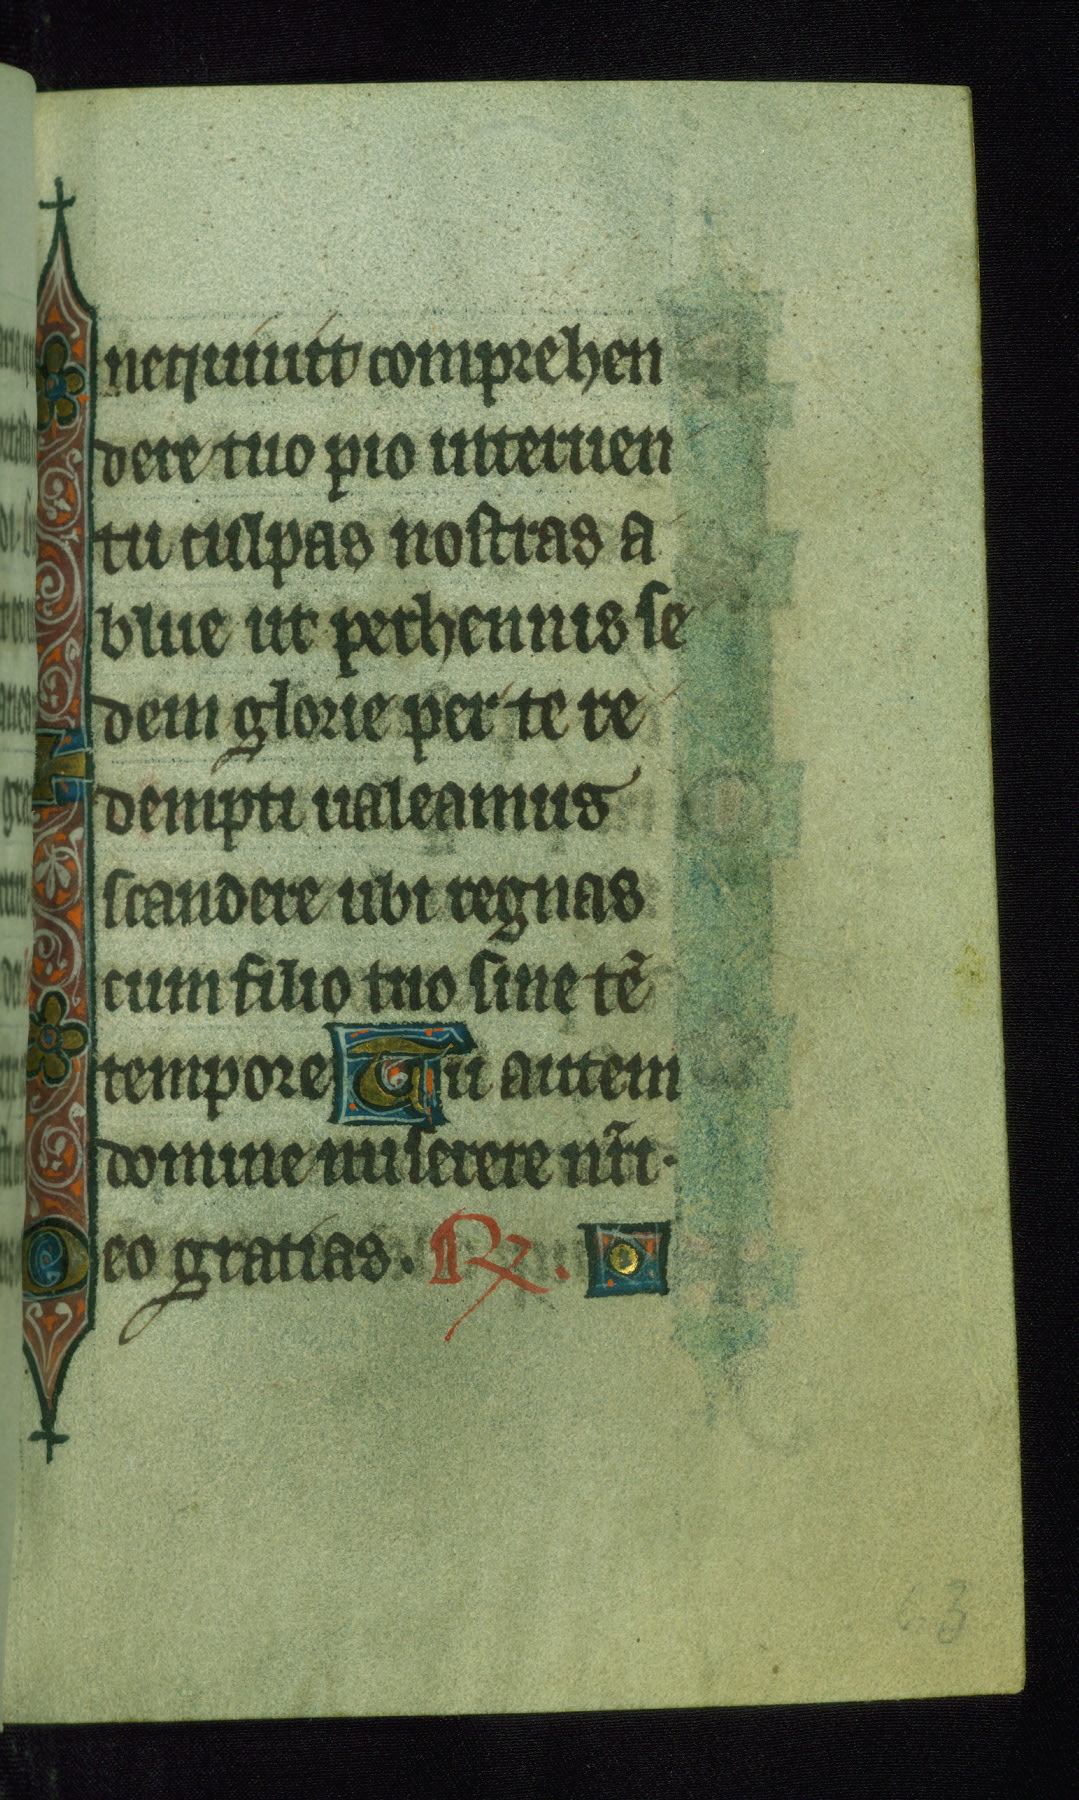 nequiuit comprehen
dere tuo pio interuen
tu culpas nostras a
blue ut perhennis se
dem glorie per te re
dempti ualeamus
scandere ubi regnas
cum filio tuo sine tē
tempore Tu autem
domine miserere nr̄i.
Deo gratias. R.
63